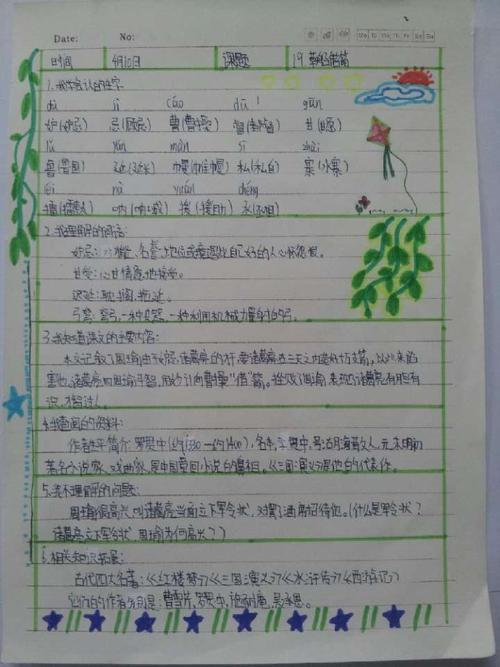 Date: No:
时间 4月10日 课题 19.草船借箭
1.我会认的生字
dù jì cáo dū gān
妒(妒忌) 忌(顾忌) 曹(曹操) 督(都督) 甘(甘愿)
lǔ yán màn sī zhài
鲁(鲁国) 延(延长) 幔(帷幔) 私(私自) 寨(水寨)
léi nà yuán chéng
擂(擂鼓) 呐(呐喊) 援(援助) 丞(丞相)
2.我理解的词语:
妒忌:对才能、名誉、地位或境遇比自己好的人心怀怨恨。
甘受:心甘情愿地接受。
迟延:耽搁,拖延。
弓弩:弩弓,一种兵器,一种利用机械力量射箭的弓。
3.我知道课文的主要内容:
本文记叙了周瑜由于妒忌诸葛亮的才干,要诸葛亮在三天之内造好十万支箭,以此来陷
害他,诸葛亮同周瑜斗智,用妙计向曹操"借"箭,挫败了周瑜,表现了诸葛亮有胆有
识,才智过人。
4.我查阅的资料:
作者生平简介:罗贯中(约1330—约1400),名本,字贯中,号湖海散人,元末明初
著名小说家、戏曲家,是中国章回小说的鼻祖。《三国演义》是他的代表作。
5.我不理解的问题:
周瑜很高兴,叫诸葛亮当面立下军令状,又摆了酒席招待他。(什么是军令状?
诸葛亮立下军令状,周瑜为何高兴?)
6.相关知识拓展:
古代四大名著:《红楼梦》《三国演义》《水浒传》《西游记》
它们的作者分别是:曹雪芹、罗贯中、施耐庵、吴承恩。